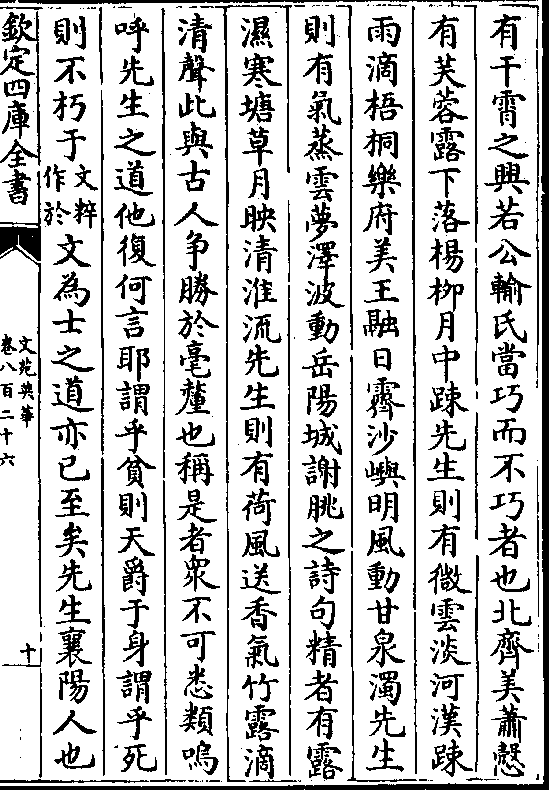 有干霄之興若公輸氏當巧而不巧者也北齊美蕭慤
有芙蓉露下落楊柳月中踈先生則有微雲淡河漢踈
雨滴梧桐樂府美王融日霽沙嶼明風動甘泉濁先生
則有氣蒸雲夢澤波動岳陽城謝朓之詩句精者有露
濕寒塘草月映清淮流先生則有荷風送香氣竹露滴
清聲此與古人争勝於毫釐也稱是者衆不可悉類嗚
呼先生之道他復何言耶謂乎貧則天爵于身謂乎死
則不朽于文粹作於文為士之道亦已至矣先生襄陽人也
欽定四庫全書
文苑英華
卷八百二十六
十